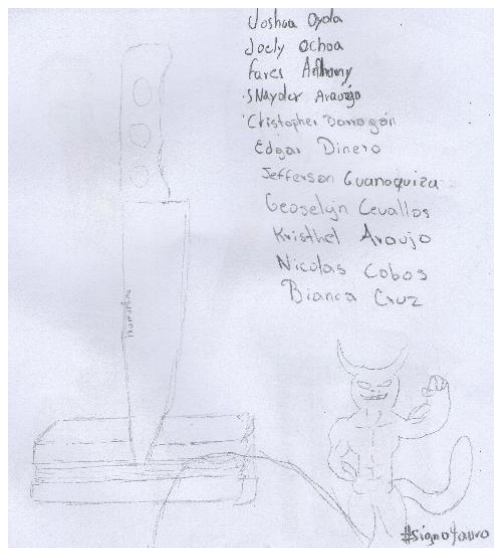 Joshua Oyola
Joely Ochoa
Fares Anthony
Snayder Araujo
Cristopher
Edgar Dinero
Jefferson Guanoquiza
Geoselyn Cevallos
Kristhel Araujo
Nicolas Cobos
Bianca Cruz
#signotauro